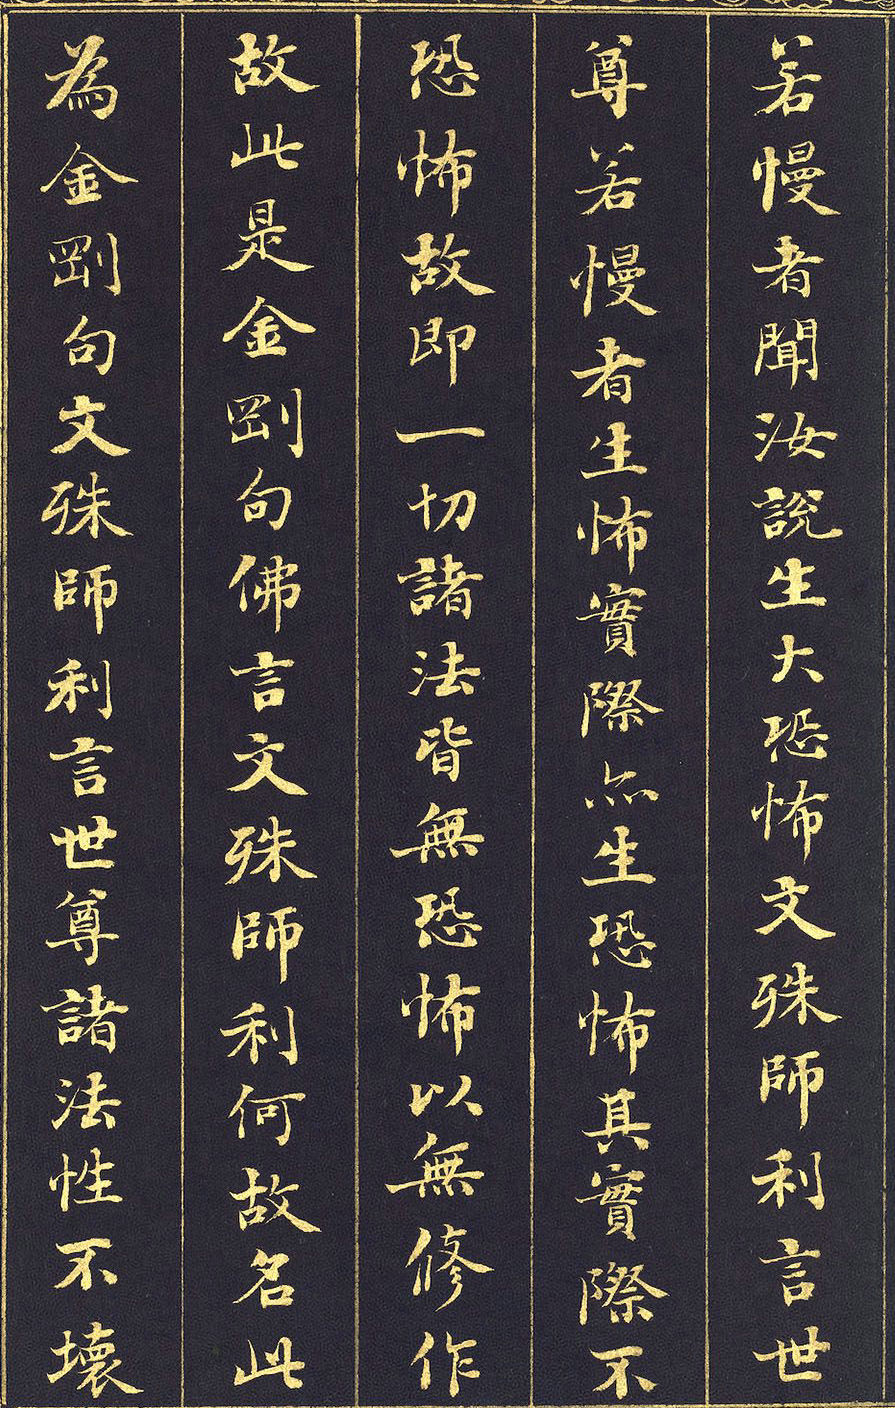 若慢者聞汝說生大恐怖文殊師利言世
尊若慢者生怖實際亦生恐怖其實際不
恐怖故即一切諸法皆無恐怖以無修作
故此是金剛句佛言文殊師利何故名此
為金剛句文殊師利言世尊諸法性不壞